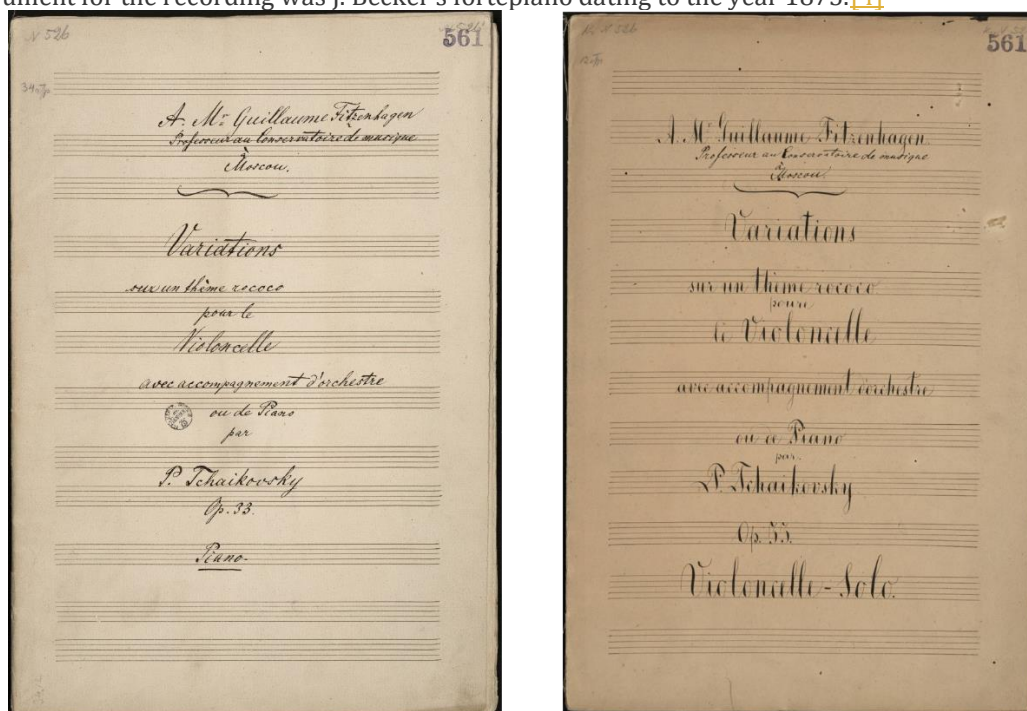 ument for the recording was J. Becker's fortepiano dating to the year 1875.[4]
N 526
561
A. Mr. Guillaume Fitzenhagen
Professeur au Conservatoire de musique
à
Moscou.
Variations
sur un thème rococo
pour le
Violoncelle
avec accompagnement d'orchestre
ou de Piano
par
P. Tchaikovsky
Op. 33.
Piano.
N 526
561
A. Mr. Guillaume Fitzenhagen
Professeur au Conservatoire de musique
à
Moscou.
Variations
sur un thème rococo
pour
le Violoncelle
avec accompagnement d'orchestre
ou de Piano
par
P. Tchaikovsky
Op. 33.
Violoncelle-Solo.